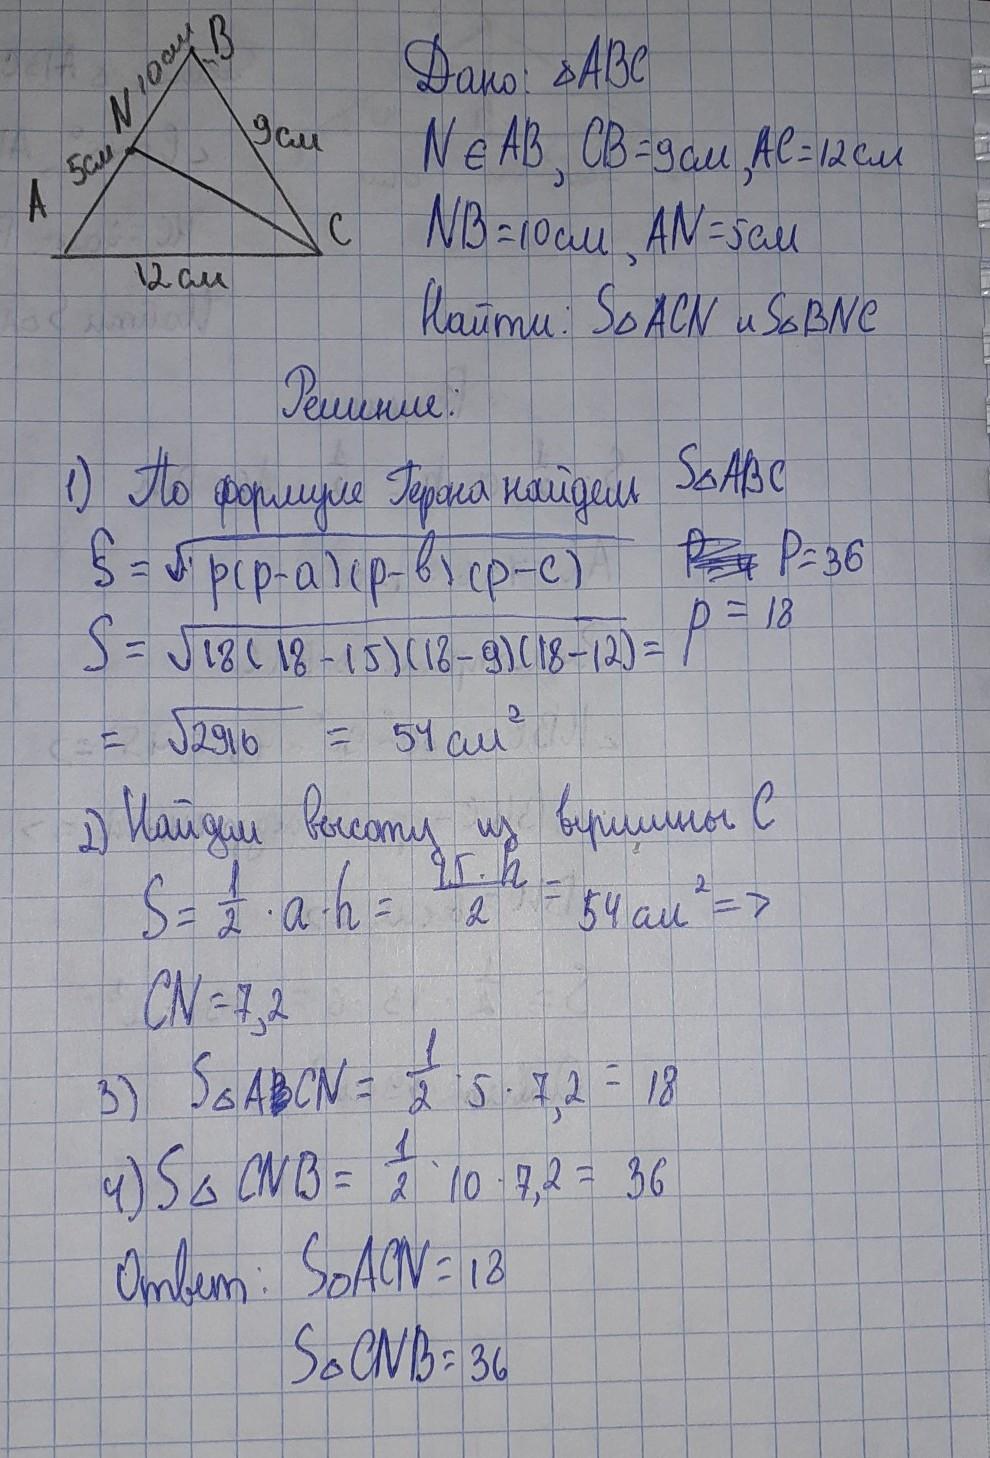 B
10см
N
9см
5см
A
C
12см
Дано: △ABC
N ∈ AB, CB=9см, AC=12см
NB=10см, AN=5см
Найти: S△ACN и S△BNC
Решение:
1) По формуле Герона найдем S△ABC
S = √p(p-a)(p-в)(p-c) P=36
S = √18(18-15)(18-9)(18-12) = p = 18
= √2916 = 54 см²
2) Найдем высоту из вершины C
S = 1/2 · a · h = 15·h/2 = 54 см² =>
CN = 7,2
3) S△ACN = 1/2 · 5 · 7,2 = 18
4) S△CNB = 1/2 · 10 · 7,2 = 36
Ответ: S△ACN = 18
S△CNB = 36